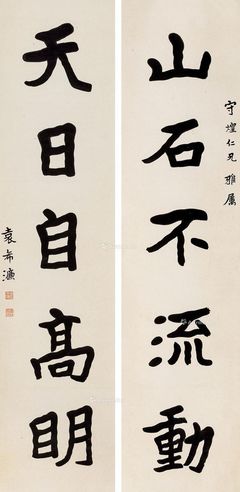 守煌仁兄雅属
山石不流動
天日自高明
袁希濂